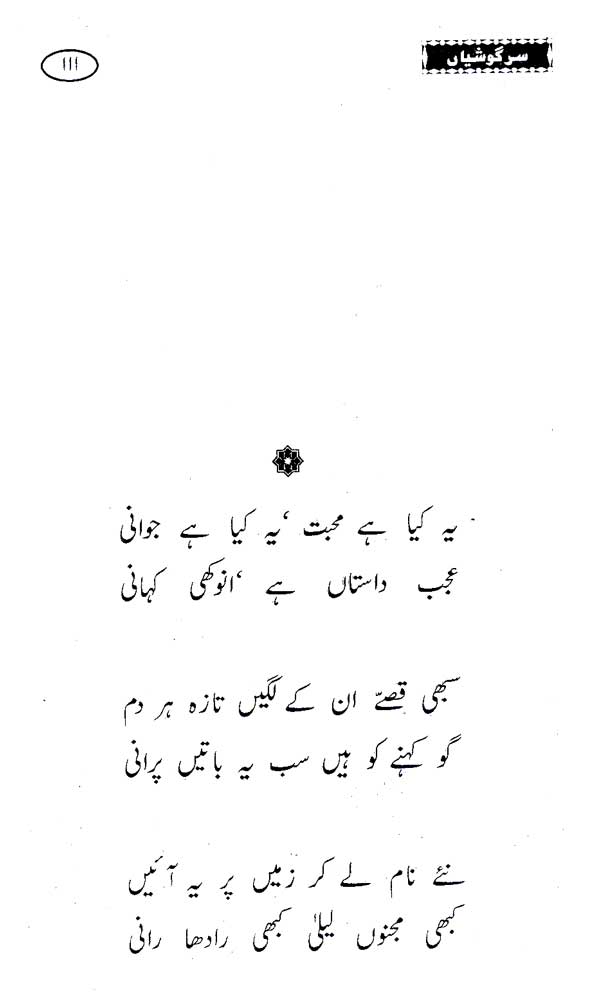 سرگوشیاں
۱۱۱
یہ کیا ہے محبت ‘یہ کیا ہے جوانی
عجب داستاں ہے ‘انوکھی کہانی
سبھی قصّے ان کے لگیں تازہ ہر دم
گو کہنے کو ہیں سب یہ باتیں پرانی
نئے نام لے کر زمیں پر یہ آئیں
کبھی مجنوں لیلیٰ کبھی رادھا رانی